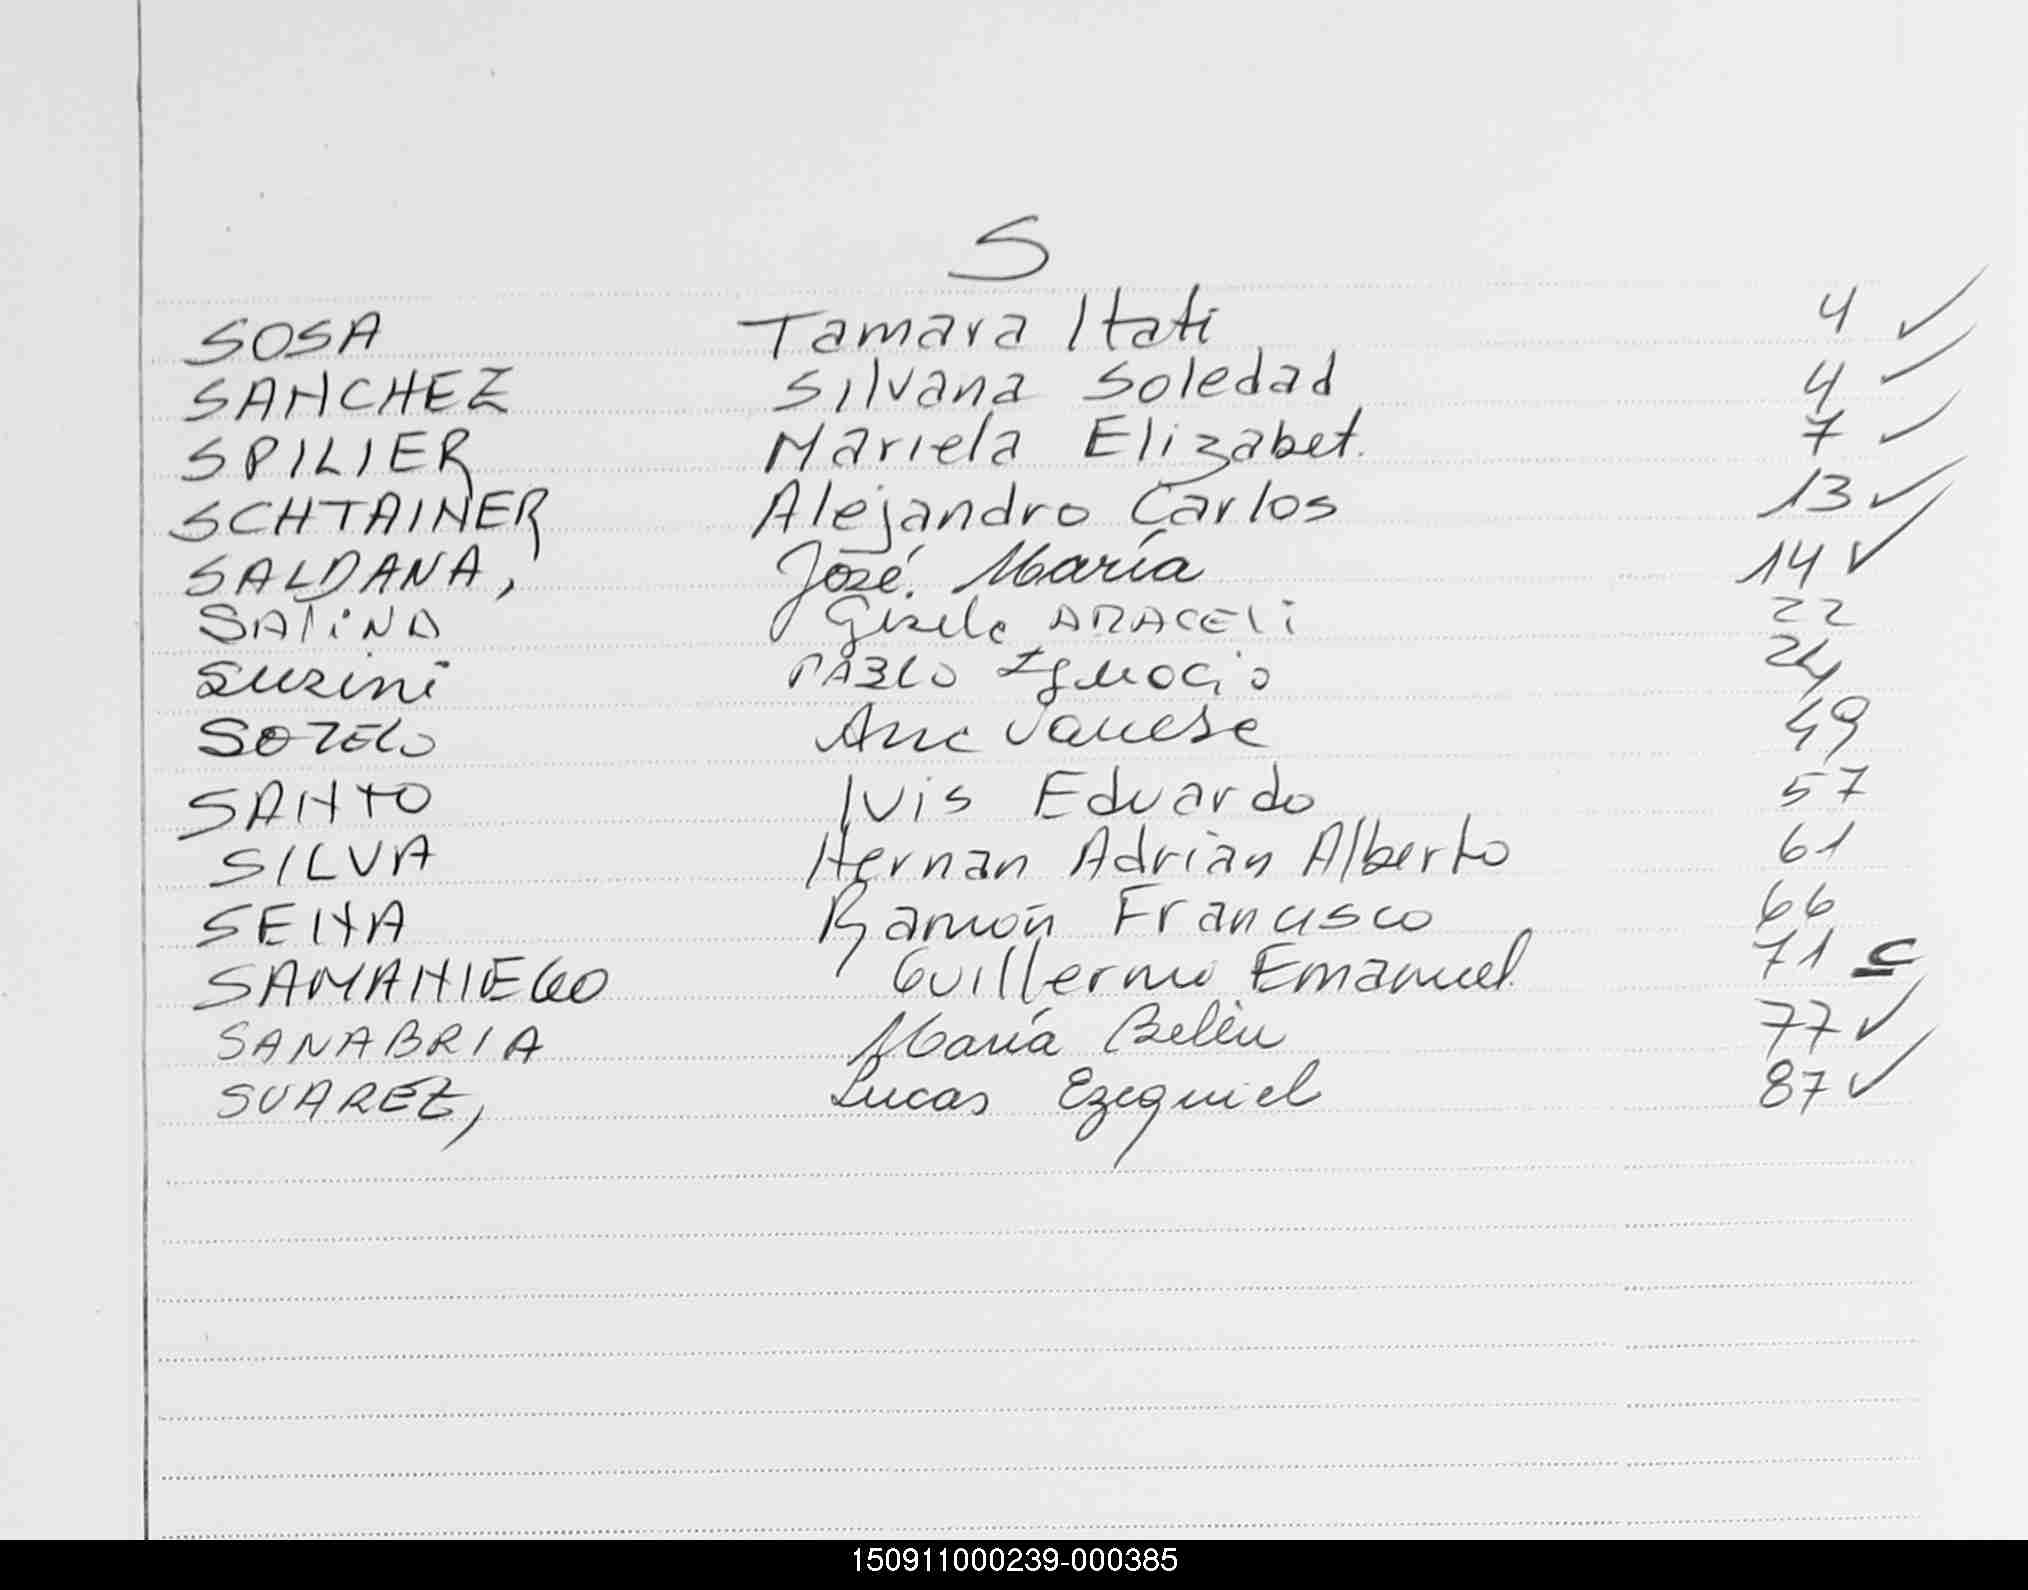 S
SOSA Tamara Itati 4 ✓
SANCHEZ Silvana Soledad 4 ✓
SPILIER Mariela Elizabet. 7 ✓
SCHTAINER Alejandro Carlos 13 ✓
SALDANA, José María 14 ✓
SALINA Gisele ARACELi 22
Suzini PABLO Ignacio 24
SOTELO Ana Vanesa 49
SANTO luis Eduardo 57
SILVA Hernan Adrian Alberto 61
SENA Ramón Francisco 66
SAMANIEGO Guillermo Emanuel. 71 C
SANABRIA María Belén 77 ✓
SUAREZ, Lucas Ezequiel 87 ✓
150911000239-000385